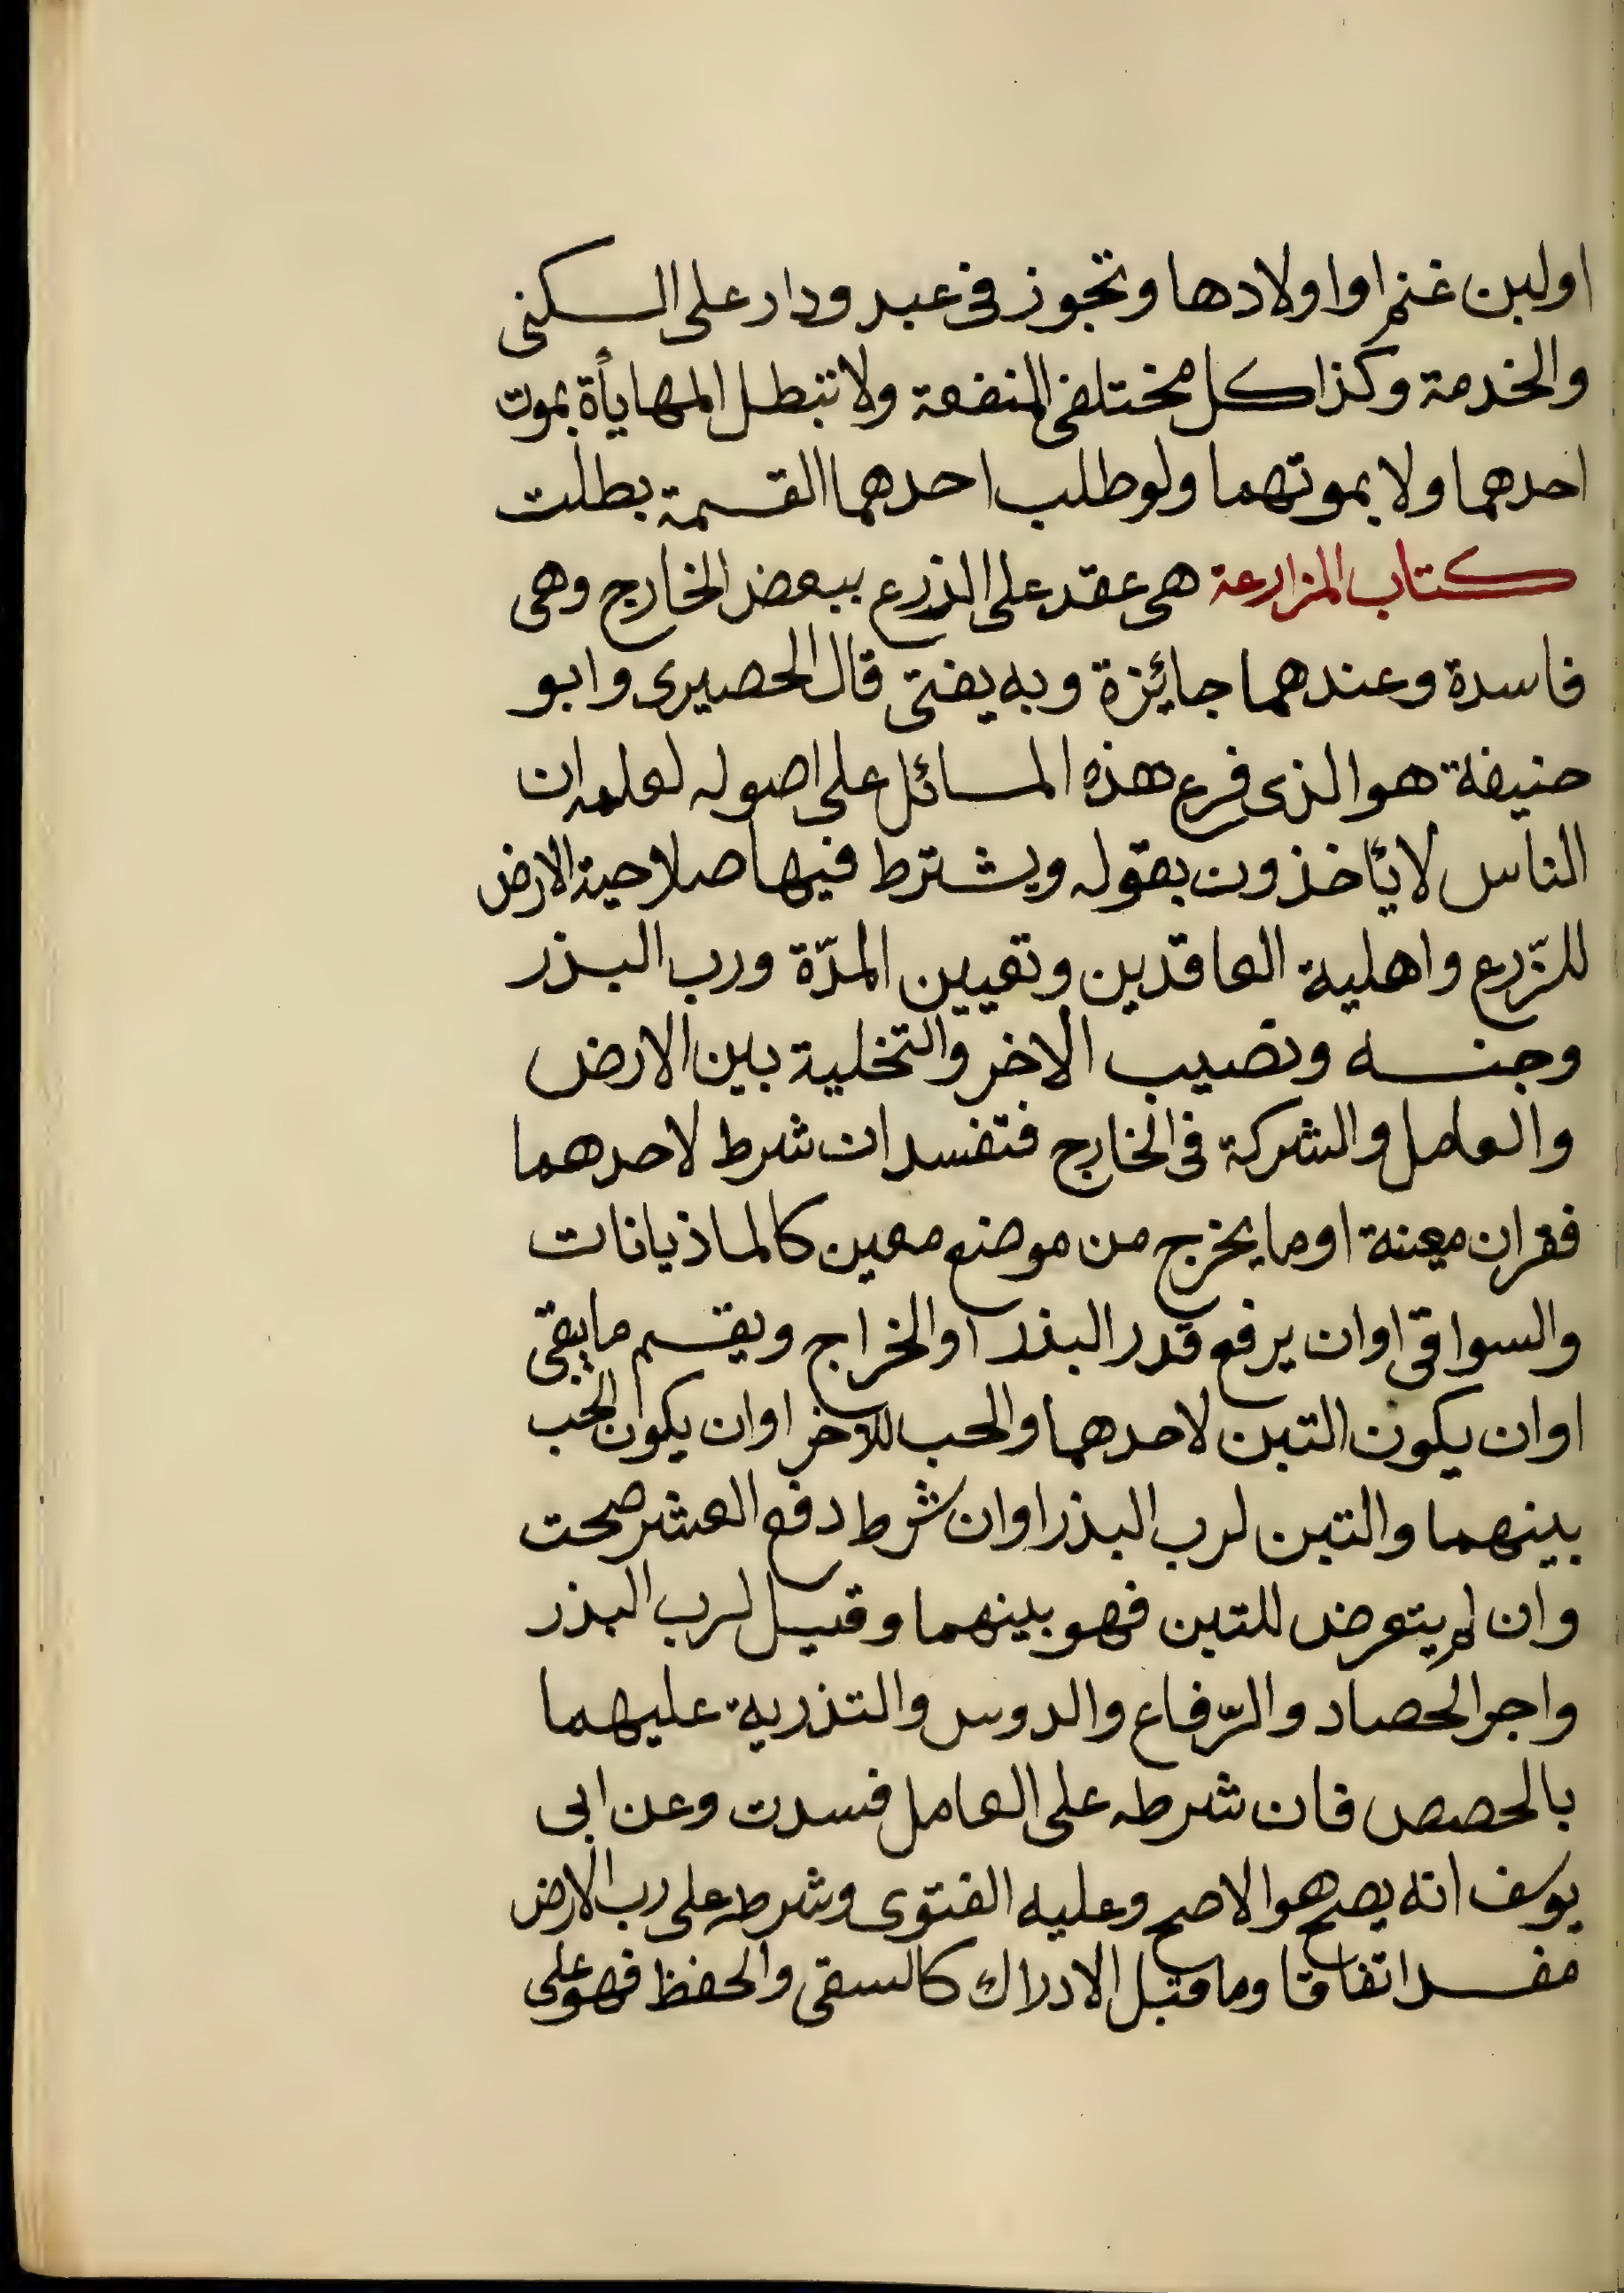 اولبن غنم او اولادها وتجوز فى عبد ودار على السكنى
والخدمة وكذا كل مختلفى المنفعة ولا تبطل المهايأة بموت
احدهما ولا بموتهما ولو طلب احدهما القسمة بطلت
كتاب المزارعة هى عقد على الزرع ببعض الخارج وهى
فاسدة وعندهما جائزة وبه يفتى قال الحصيرى وابو
حنيفة هو الذى فرع هذه المسائل على اصوله لعلمه ان
الناس لا يأخذون بقوله ويشترط فيها صلاحية الارض
للزّرع واهلية العاقدين وتعيين المدّة ورب البذر
وجنسه ونصيب الاخر والتخلية بين الارض
والعامل والشركة فى الخارج فتفسد ان شرط لاحدهما
فقران معينة او ما يخرج من موضع معين كالماذيانات
والسواقى او ان يرفع قدر البذر او الخراج ويقسم ما يبقى
او ان يكون التبن لاحدهما والحب للآخر او ان يكون الحب
بينهما والتبن لرب البذر او ان شرط دفع العشر صحت
وان لم يتعرض للتبن فهو بينهما وقيل لرب البذر
واجر الحصاد والرّفاع والدوس والتذرية عليهما
بالحصص فان شرطه على العامل فسدت وعن ابى
يوسف انه يصح هو الاصح وعليه الفتوى وشرطه على رب الارض
مفسد اتفاقا وما قبل الادراك كالسقى والحفظ فهو على